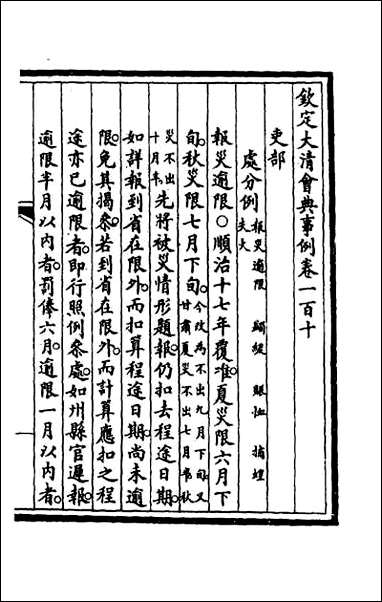 欽定大清會典事例卷一百十
吏部
處分例 報災逾限 蠲緩 賑恤 捕蝗
救火
報災逾限○順治十七年覆准夏災限六月下
旬秋災限七月下旬 今改為不出九月下旬又
甘肅夏災不出七月半秋
災不出
十月半 先將被災情形題報仍扣去程途日期
如詳報到省在限外而扣算程途日期尚未逾
限免其揭參若到省在限外而計算應扣之程
途亦已逾限者即行照例參處如州縣官遲報
逾限半月以內者罰俸六月逾限一月以內者